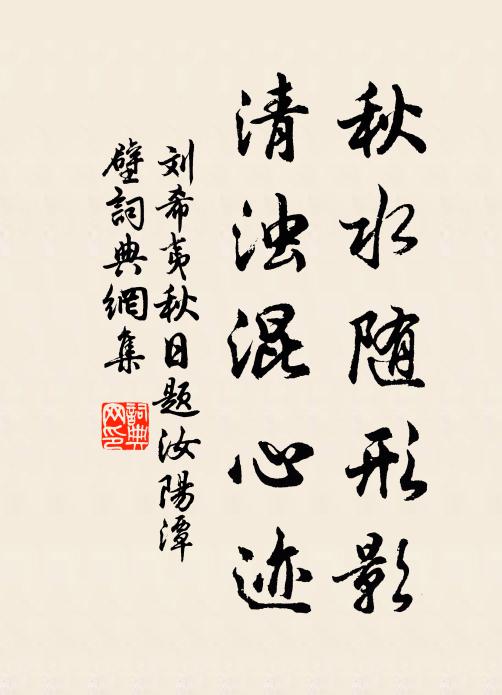 秋水随形影
清浊混心迹
刘希夷秋日题汝陽潭
壁詞典網集
詞典网印